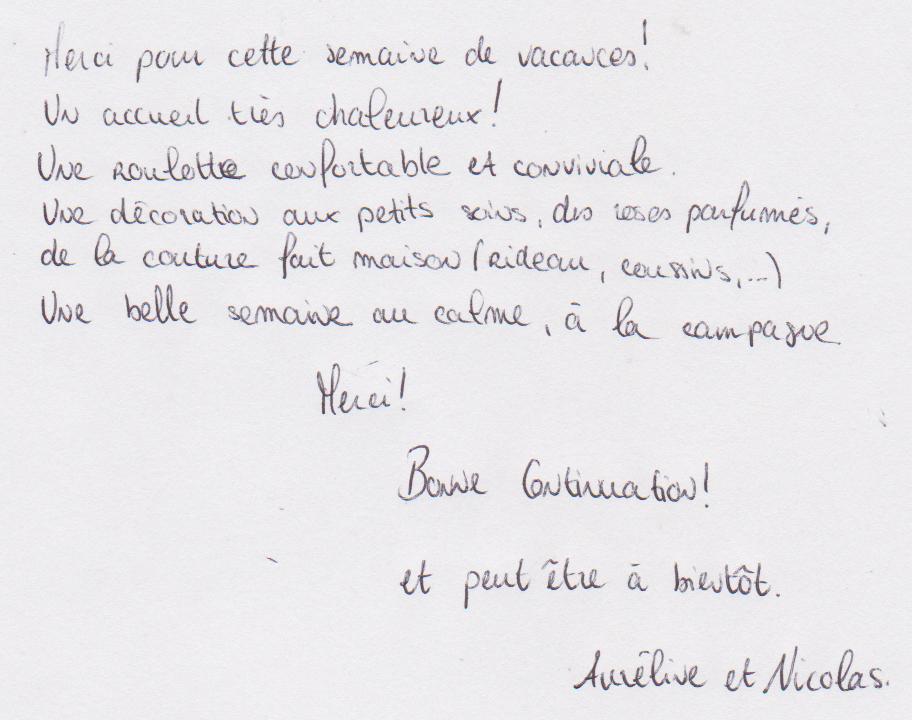 Merci pour cette semaine de vacances!
Un accueil très chaleureux!
Une roulotte confortable et conviviale.
Une décoration aux petits soins, des roses parfumés,
de la couture fait maison (rideau, coussins,...)
Une belle semaine au calme, à la campagne.
Merci!
Bonne Continuation!
et peut être à bientôt.
Auréline et Nicolas.